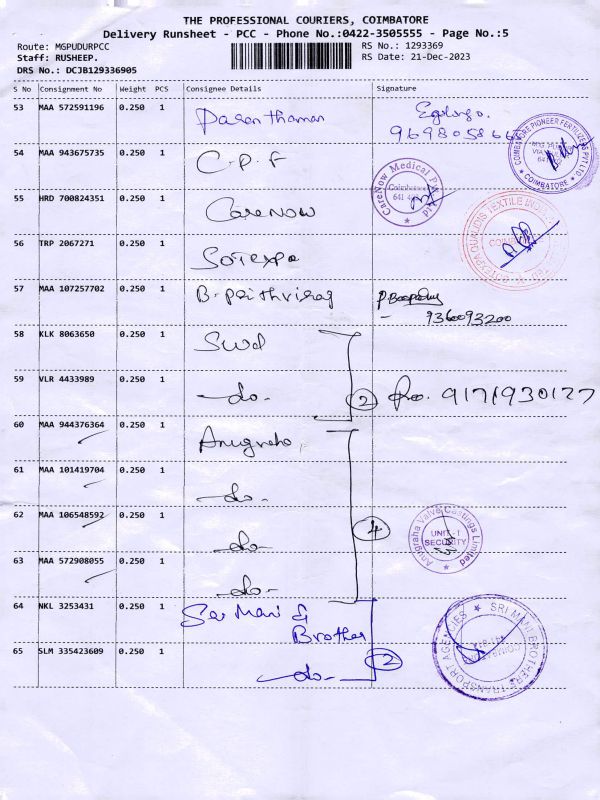 THE PROFESSIONAL COURIERS, COIMBATORE
Delivery Runsheet - PCC - Phone No.:0422-3505555 - Page No.:5
Route: MGPUDURPCC
RS No.: 1293369
Staff: RUSHEEP.
RS Date: 21-Dec-2023
DRS No.: DCJB129336905
S No Consignment No Weight PCS Consignee Details Signature
53 MAA 572591196 0.250 1
54 MAA 943675735 0.250 1 C.P.F
COIMBATORE PIONEER FERTILIZERS
COIMBATORE
55 HRD 700824351 0.250 1 CareNow
CareNow Medical
Coimbatore
56 TRP 2067271 0.250 1 Sotexpa
57 MAA 107257702 0.250 1 B. Prithviraj
9360093200
58 KLK 8063650 0.250 1 Swd
59 VLR 4433989 0.250 1 -do- 2
60 MAA 944376364 0.250 1 Anugraha
61 MAA 101419704 0.250 1 -do-
62 MAA 106548592 0.250 1 -do- 4
Anugraha Valve Castings Limited
UNIT-1
SECURITY
63 MAA 572908055 0.250 1 -do-
64 NKL 3253431 0.250 1 Sri Mani &
Brother
SRI MANI BROTHERS TRANSPORT AGENCIES
65 SLM 335423609 0.250 1 -do- 2